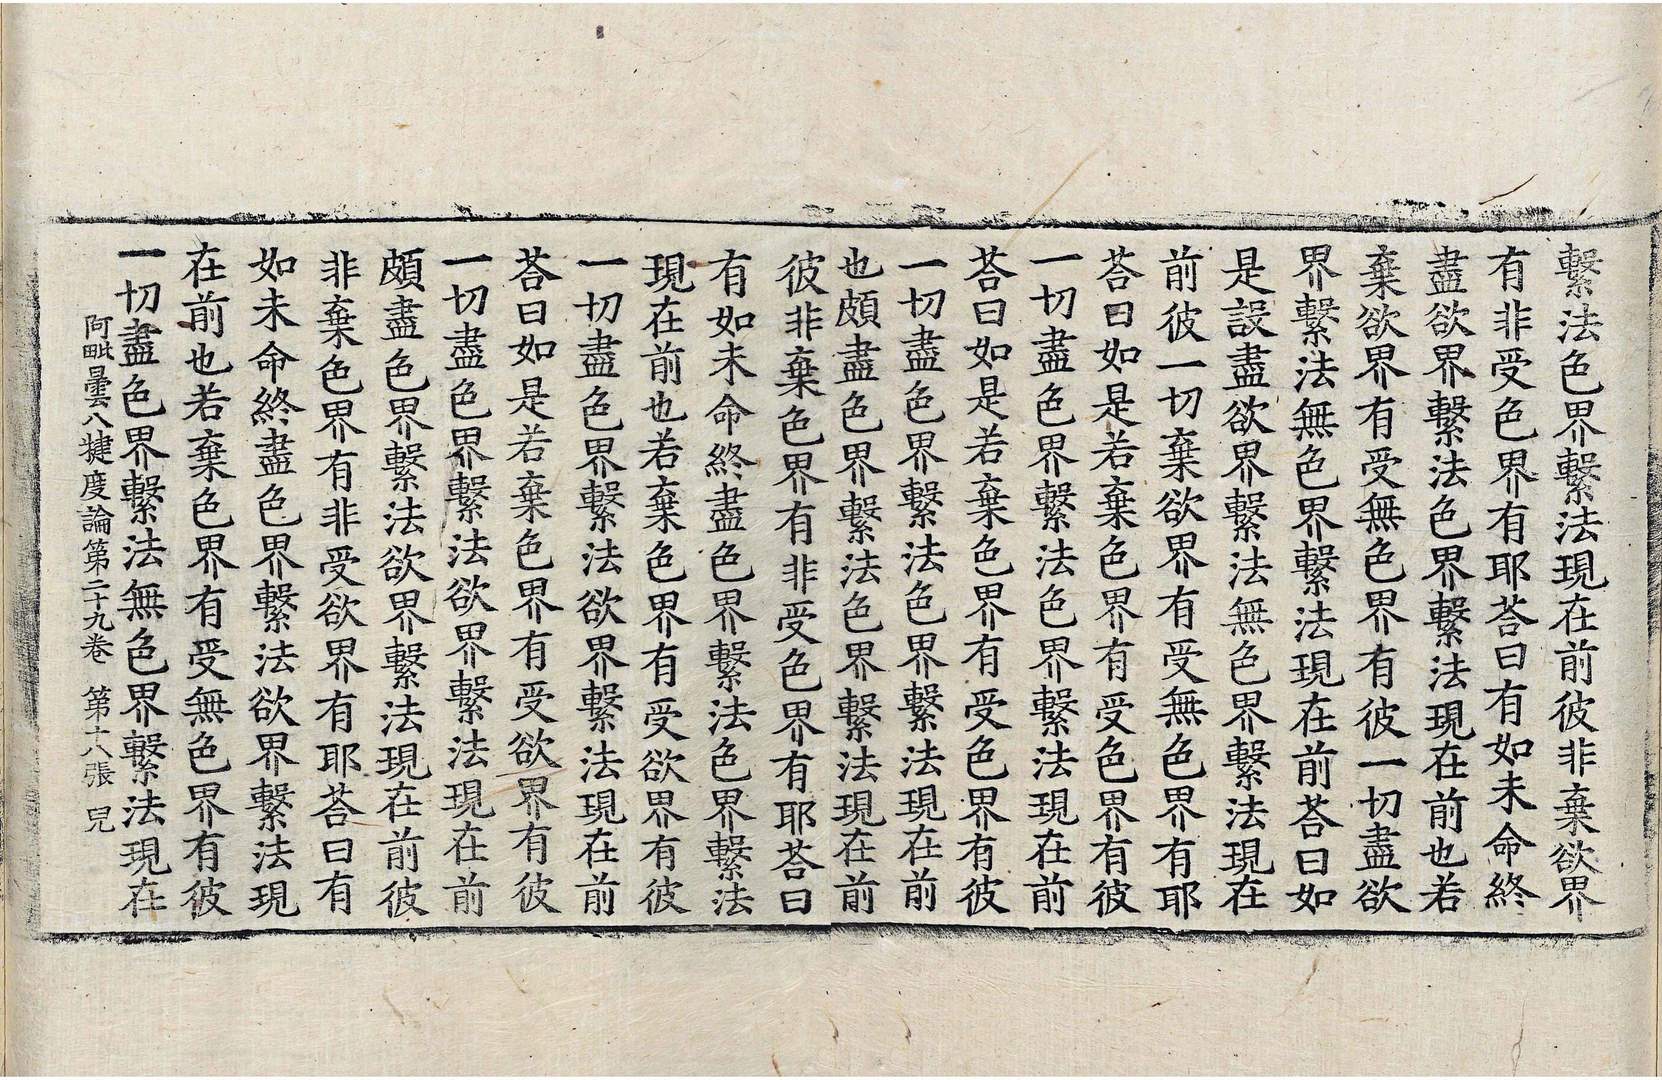 繫法色界繫法現在前彼非棄欲界
有非受色界有耶荅曰有如未命終
盡欲界繫法色界繫法現在前也若
棄欲界有受無色界有彼一切盡欲
界繫法無色界繫法現在前荅曰如
是設盡欲界繫法無色界繫法現在
前彼一切棄欲界有受無色界有耶
荅曰如是若棄色界有受色界有彼
一切盡色界繫法色界繫法現在前
荅曰如是若棄色界有受色界有彼
一切盡色界繫法色界繫法現在前
也頗盡色界繫法色界繫法現在前
彼非棄色界有非受色界有耶荅曰
有如未命終盡色界繫法色界繫法
現在前也若棄色界有受欲界有彼
一切盡色界繫法欲界繫法現在前
荅曰如是若棄色界有受欲界有彼
一切盡色界繫法欲界繫法現在前
頗盡色界繫法欲界繫法現在前彼
非棄色界有非受欲界有耶荅曰有
如未命終盡色界繫法欲界繫法現
在前也若棄色界有受無色界有彼
一切盡色界繫法無色界繫法現在
阿毗曇八揵度論第二十九卷 第六張 兄